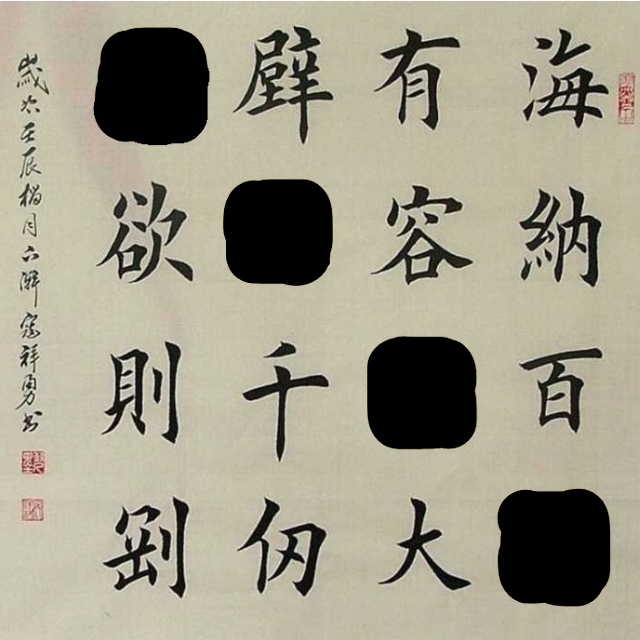 海納百
有容大
壁千仞
欲則剛
歲次壬辰榴月祥勇书